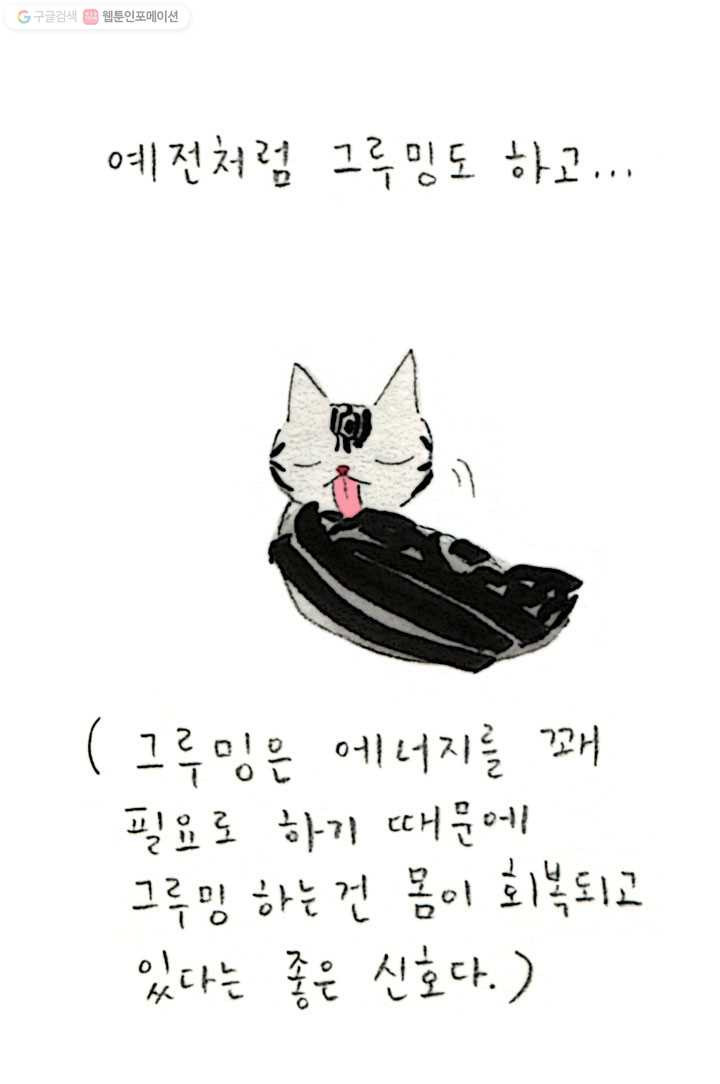 구글검색 웹툰인포메이션
예전처럼 그루밍도 하고...
( 그루밍은 에너지를 꽤
필요로 하기 때문에
그루밍 하는건 몸이 회복되고
있다는 좋은 신호다.)